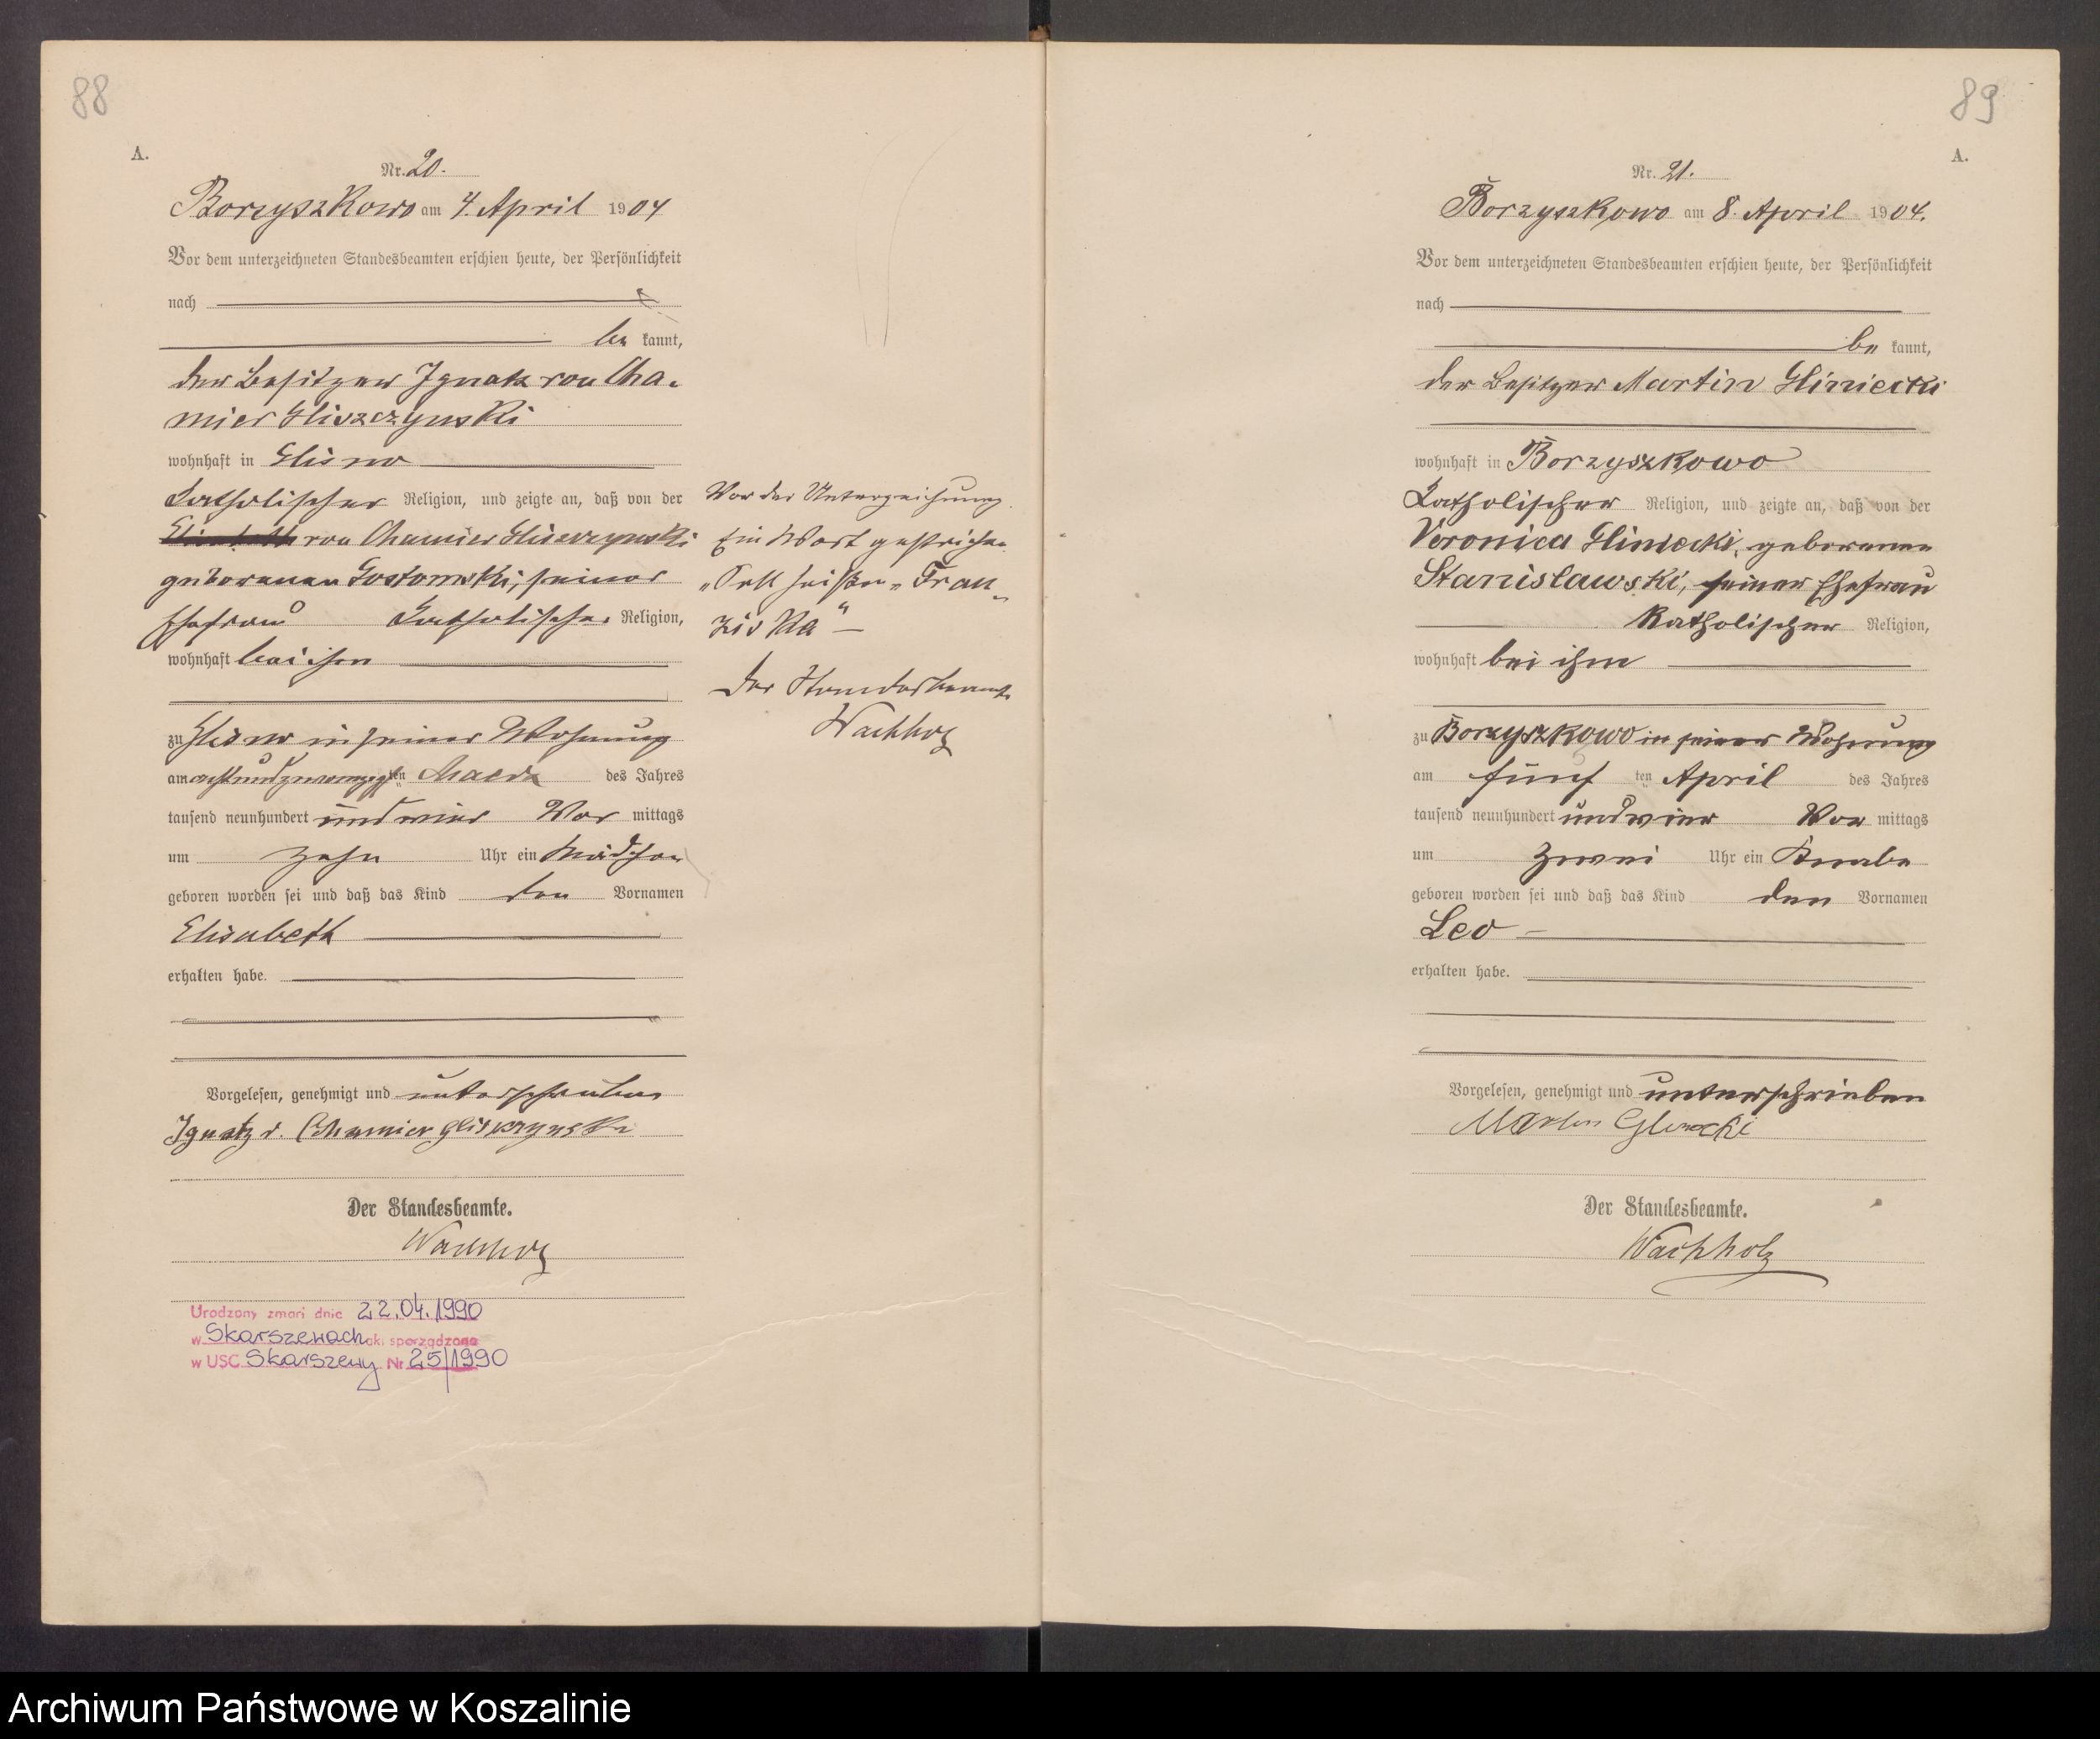 88
A.
Nr. 20.
Borzyszkowo am 4. April 1904
Vor dem unterzeichneten Standesbeamten erschien heute, der Persönlichkeit
nach
be kannt,
der Besitzer Ignatz von Cha-
mier Gliszczynski
wohnhaft in Glisno
katholischer Religion, und zeigte an, daß von der
von Chamier Gliszczynski
geborenen Gostomski, seiner
Ehefrau katholischer Religion,
wohnhaft bei ihm
zu Glisno in seiner Wohnung
am achtundzwanzigsten März des Jahres
tausend neunhundert und vier Vor mittags
um zehn Uhr ein Mädchen
geboren worden sei und daß das Kind den Vornamen
Elisabeth
erhalten habe.
Vorgelesen, genehmigt und unterschrieben
Ignatz v. Chamier Gliszczynski
Der Standesbeamte.
Wachholz
Urodzony zmarł dnia 22.04.1990
w Skarszewach akt sporządzono
w USC Skarszewy Nr 25/1990
Vor der Unterzeichnung
Ein Wort gestrichen
"Soll heißen "Fran-
ziska"
Der Standesbeamte
Wachholz
89
A.
Nr. 21.
Borzyszkowo am 8. April 1904.
Vor dem unterzeichneten Standesbeamten erschien heute, der Persönlichkeit
nach
be kannt,
der Besitzer Martin Gliniecki
wohnhaft in Borzyszkowo
katholischer Religion, und zeigte an, daß von der
Veronica Gliniecki, geborenen
Stanislawski, seiner Ehefrau
katholischer Religion,
wohnhaft bei ihm
zu Borzyszkowo in seiner Wohnung
am fünf ten April des Jahres
tausend neunhundert und vier Vor mittags
um zwei Uhr ein Knabe
geboren worden sei und daß das Kind den Vornamen
Leo
erhalten habe.
Vorgelesen, genehmigt und unterschrieben
Martin Glinecki
Der Standesbeamte.
Wachholz
Archiwum Państwowe w Koszalinie